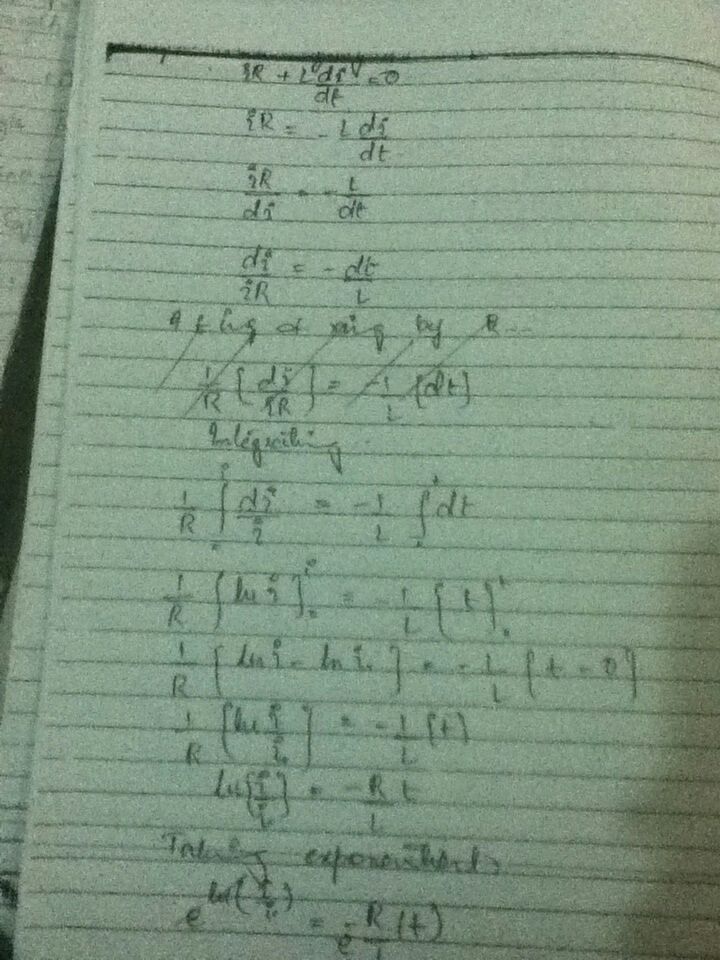 iR + L di/dt = 0
iR = - L di/dt
iR/di = - L/dt
di/iR = - dt/L
by R...
1/R [di/iR] = -1/L [dt]
Integrating
1/R ∫ di/i = -1/L ∫ dt
1/R [ln i] = -1/L [t]
1/R [ln i - ln i₀] = -1/L [t - 0]
1/R [ln i/i₀] = -1/L [t]
ln[i/i₀] = -R/L t
Taking exponential,
e^ln(i/i₀) = e^-R/L (t)